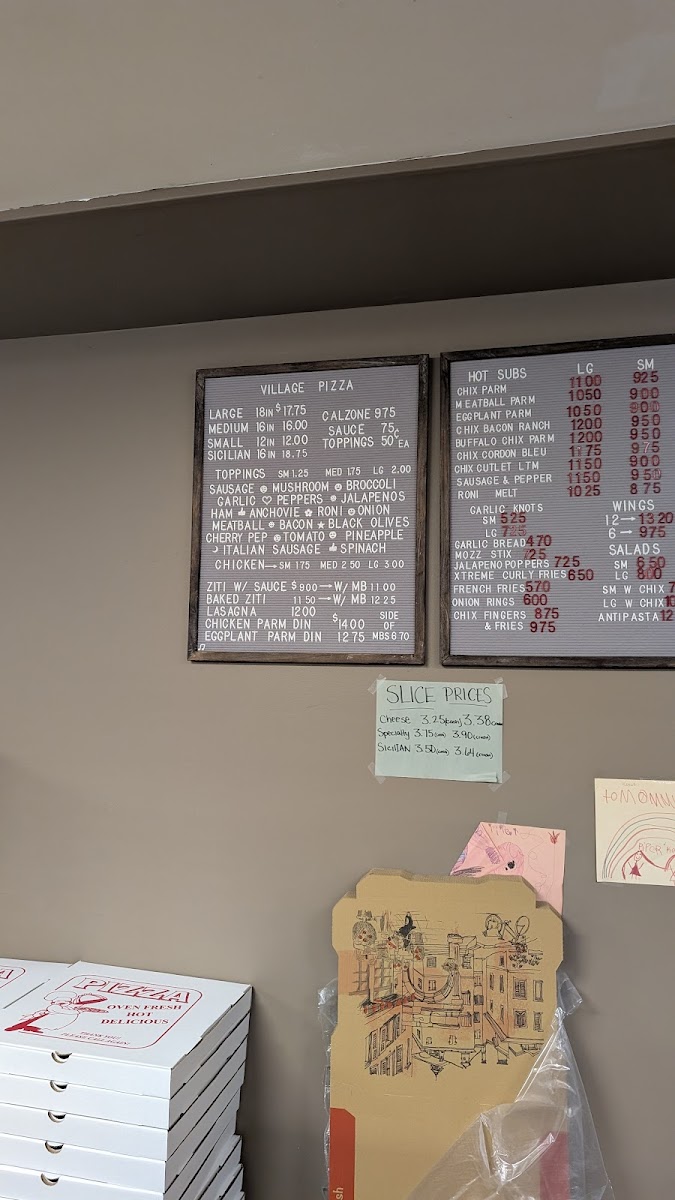 VILLAGE PIZZA
LARGE 18IN $17.75
MEDIUM 16IN 16.00
SMALL 12IN 12.00
SICILIAN 16IN 18.75
CALZONE 975
SAUCE 75¢
TOPPINGS 50¢EA
TOPPINGS SM 1.25 MED 1.75 LG 2.00
SAUSAGE MUSHROOM BROCCOLI
GARLIC ♡ PEPPERS JALAPENOS
HAM ANCHOVIE RONI ONION
MEATBALL BACON ★ BLACK OLIVES
CHERRY PEP TOMATO PINEAPPLE
ITALIAN SAUSAGE SPINACH
CHICKEN→ SM 175 MED 2 50 LG 3.00
ZITI W/ SAUCE $900 → W/ MB 11 00
BAKED ZITI 11 50 → W/ MB 12 25
LASAGNA 1200
CHICKEN PARM DIN $14 00
EGGPLANT PARM DIN 12 75
SIDE
OF
MBS 6 70
HOT SUBS LG SM
CHIX PARM 1100 925
MEATBALL PARM 1050 900
EGGPLANT PARM 1050 900
CHIX BACON RANCH 1200 950
BUFFALO CHIX PARM 1200 950
CHIX CORDON BLEU 1175 975
CHIX CUTLET LTM 1150 900
SAUSAGE & PEPPER 1150 950
RONI MELT 1025 875
GARLIC KNOTS
SM 525
LG 725
GARLIC BREAD 470
MOZZ STIX 725
JALAPENO POPPERS 725
XTREME CURLY FRIES 650
FRENCH FRIES 570
ONION RINGS 600
CHIX FINGERS 875
& FRIES 975
WINGS
12 → 13 20
6 → 975
SALADS
SM 6 50
LG 800
SM W CHIX
LG W CHIX
ANTIPASTA
SLICE PRICES
Cheese 3.25 (cash) 3.38
Specialty 3.75 (cash) 3.90
Sicilian 3.50 (cash) 3.64
PIZZA
OVEN FRESH
HOT
DELICIOUS
THANK YOU!
PLEASE CALL AGAIN!
sh